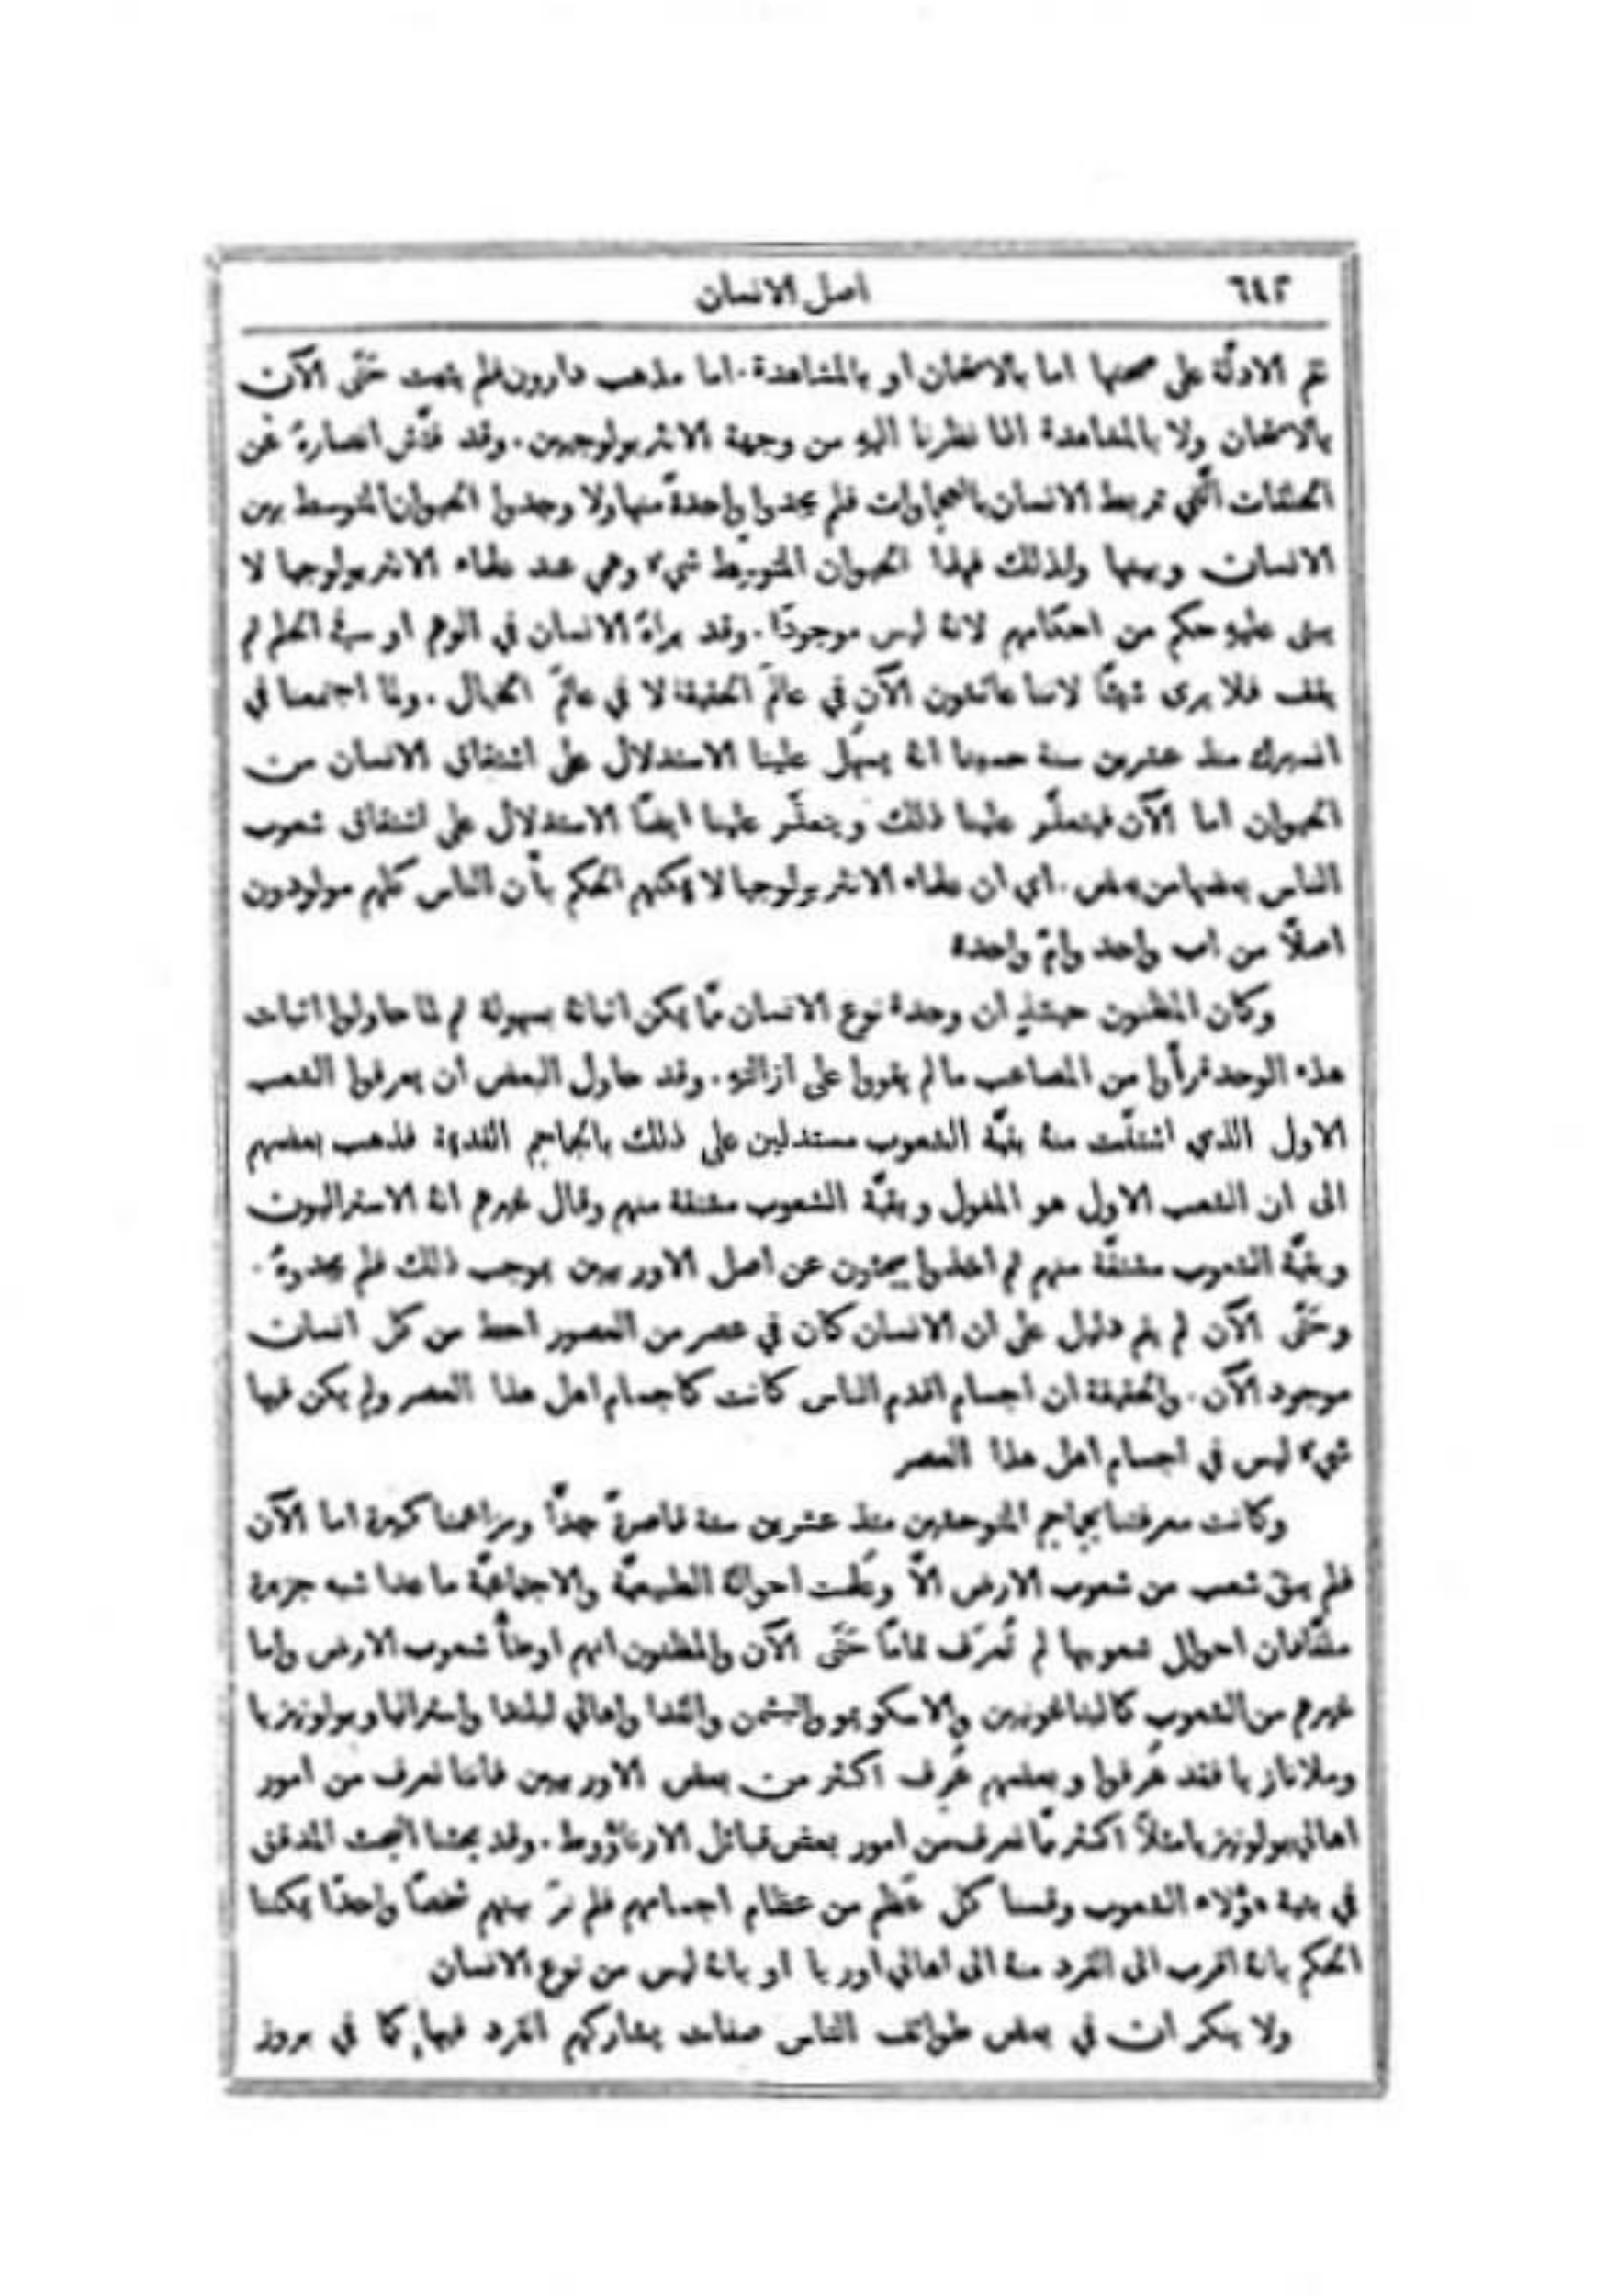 ٦٤٢
اصل الانسان
تقم الادلّة على صحتها اما بالامتحان او بالمشاهدة . اما مذهب دارون فلم يثبت حتَّى الآن
بالامتحان ولا بالمشاهدة اذا نظرنا اليهِ من وجهة الانثربولوجيين . وقد فتّش انصارهُ عن
الحلقات الَّتي تربط الانسان بالعجماوات فلم يجدوا واحدةً منها ولا وجدوا الحيوان المتوسط بين
الانسان وبينها ولذلك فهذا الحيوان المتوسّط شيء وهمي عند علماء الانثربولوجيا لا
يبنى عليهِ حكم من احكامهم لانهُ ليس موجودًا . وقد يراهُ الانسان في الوهم او في الحلم ثم
يقف فلا يرى شيئًا لاننا عائشون الآن في عالَم الحقيقة لا في عالَم الخيال . ولما اجتمعنا في
انسبرك منذ عشرين سنة حسبنا انهُ يسهل علينا الاستدلال على اشتقاق الانسان من
الحيوان اما الآن فيتعذَّر علينا ذلك ويتعذَّر علينا ايضًا الاستدلال على اشتقاق شعوب
الناس بعضها من بعض . اي ان علماء الانثربولوجيا لا يمكنهم الحكم بأن الناس كلهم مولودون
اصلاً من اب واحد وامّ واحدة
وكان المظنون حينئذٍ ان وحدة نوع الانسان ممَّا يمكن اثباتهُ بسهولة ثم لما حاولوا اثبات
هذه الوحدة رأوا من المصاعب ما لم يقووا على ازالتهِ . وقد حاول البعض ان يعرفوا الشعب
الاول الذي اشتقَّت منهُ بقيَّة الشعوب مستدلين على ذلك بالجماجم القديمة فذهب بعضهم
الى ان الشعب الاول هو المغول وبقيَّة الشعوب مشتقة منهم وقال غيرهم انهُ الاستراليون
وبقيَّة الشعوب مشتقَّة منهم ثم اخذوا يبحثون عن اصل الاوربيين بموجب ذلك فلم يجدوهُ .
وحتَّى الآن لم يقم دليل على ان الانسان كان في عصر من العصور احط من كل انسان
موجود الآن . والحقيقة ان اجسام اقدم الناس كانت كاجسام اهل هذا العصر ولم يكن فيها
شيء ليس في اجسام اهل هذا العصر
وكانت معرفتنا بجماجم المتوحشين منذ عشرين سنة قاصرةً جدًّا ومزاعمنا كثيرة اما الآن
فلم يبقَ شعب من شعوب الارض الاَّ وعُلمت احوالهُ الطبيعيَّة والاجتماعيَّة ما عدا شبه جزيرة
ملقَّا فان احوال شعوبها لم تُعرَف تمامًا حتَّى الآن والمظنون انهم اوطأُ شعوب الارض واما
غيرهم من الشعوب كالبتاغونيين والاسكويمو والبشمن والفدا واهالي لبلندا واستراليا وبولونيزيا
وملانازيا فقد عُرِفوا وبعضهم عُرِف اكثر من بعض الاوربيين فاننا نعرف من امور
اهالي بولونيزيا مثلاً اكثر ممَّا نعرف من امور بعض قبائل الارناؤوط . وقد بحثنا البحث المدقق
في بنية هؤلاء الشعوب وقسنا كل عَظم من عظام اجسامهم فلم نرَ بينهم شخصًا واحدًا يمكننا
الحكم بانهُ اقرب الى القرد منهُ الى اهالي اوربا او بانهُ ليس من نوع الانسان
ولا ينكر ان في بعض طوائف الناس صفات يشاركهم القرد فيها كما في بروز